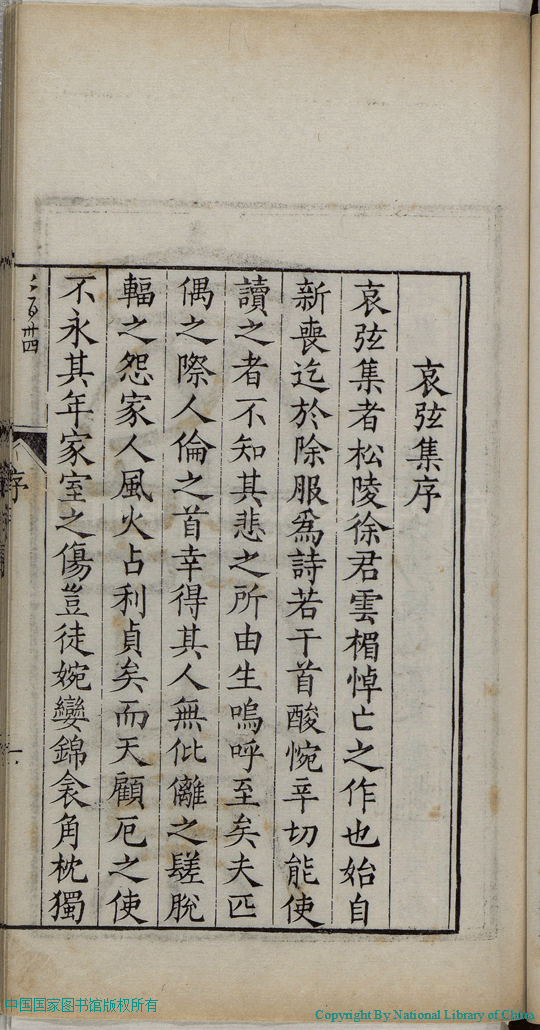 哀弦集序
哀弦集者松陵徐君雲楣悼亡之作也始自
新喪迄於除服爲詩若干首酸惋辛切能使
讀之者不知其悲之所由生嗚呼至矣夫匹
偶之際人倫之首幸得其人無仳離之嗟脫
輻之怨家人風火占利貞矣而天顧厄之使
不永其年家室之傷豈徒婉孌錦衾角枕獨
百卌四
序
一
中国国家图书馆版权所有
Copyright By National Library of China